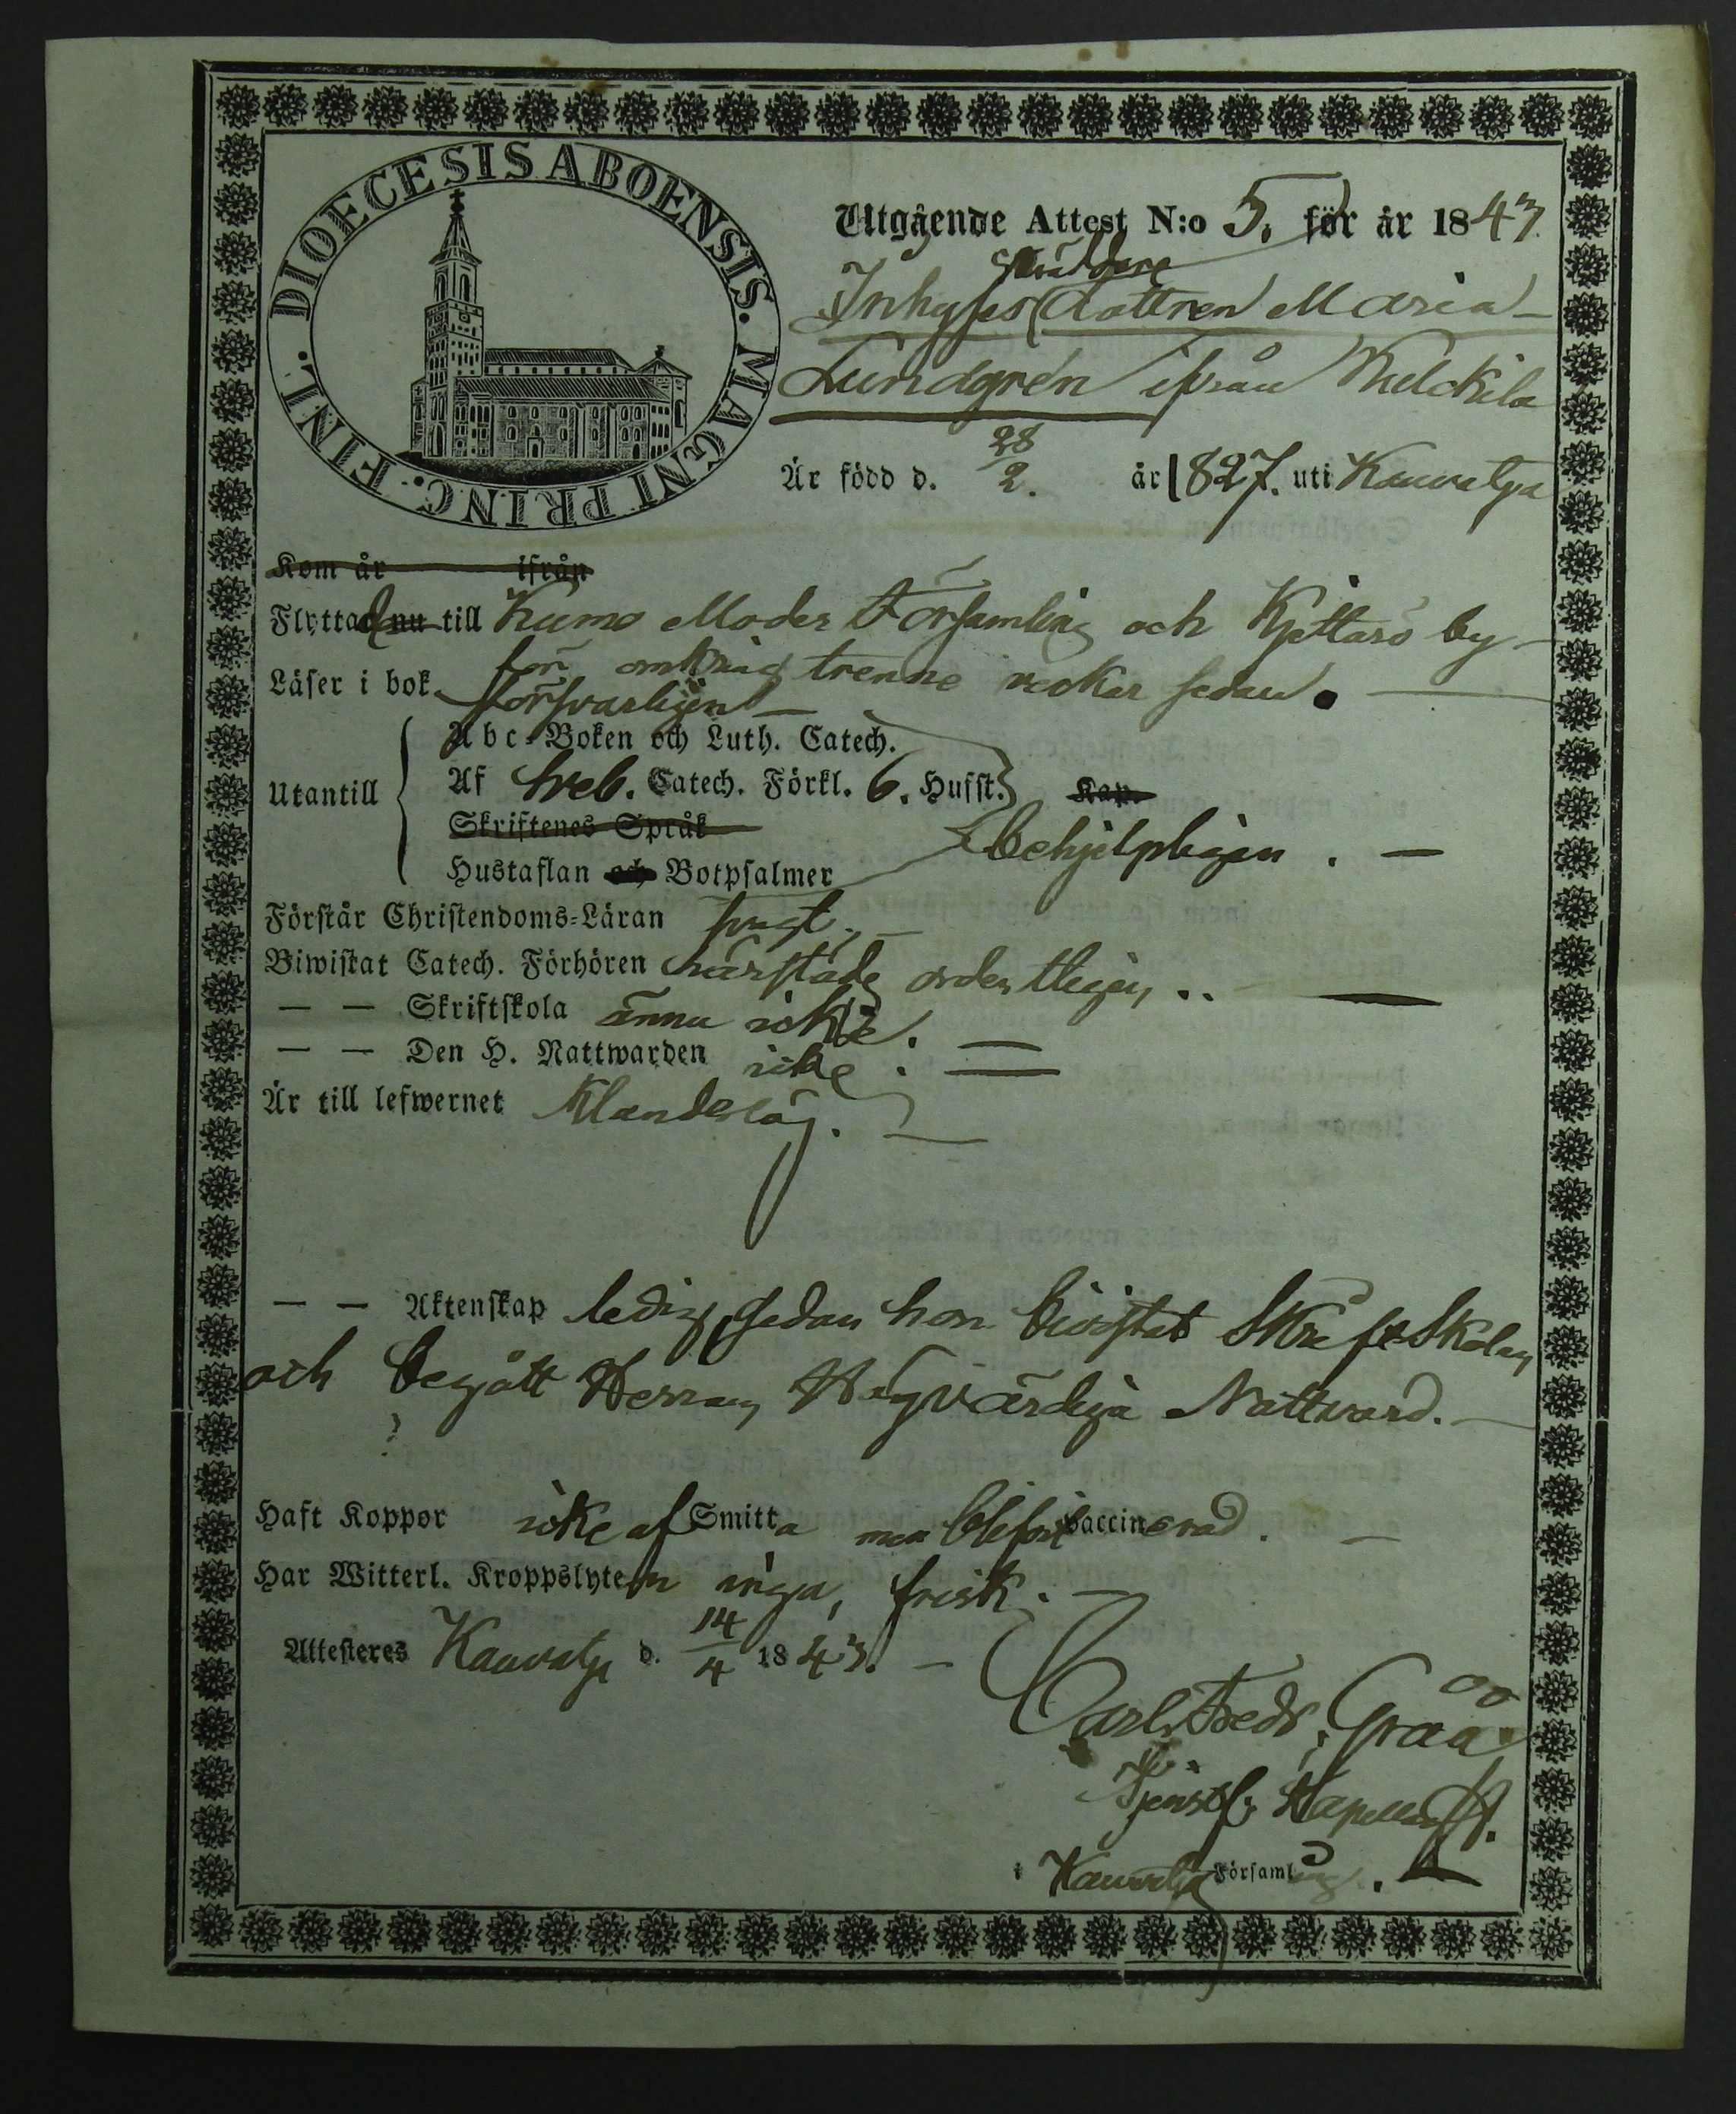 DIOECESIS ABOENSIS. MAGNI PRINC. FINL.
Utgående Attest N:o 5. för år 1843
Inhyses dottren Maria
Lundgrén ifrån Kulckila
Är född d. 28/2. år 1827. uti Kauvatsa
Kom år ifrån
Flyttade nu till Kumo Moder Församling och Kjettarö by
för omkring trenne veckor sedan.
Läser i bok. försvarligen
Abc-Boken och Luth. Catech.
Utantill Af Sveb. Catech. Förkl. 6. Hufst. Kap.
Skriftenes Språk
behjelpligen.
Hustaflan och Botpsalmer
Förstår Christendoms-Läran svagt.
Biwistat Catech. Förhören härstädes ordentligen..
— — Skriftskola ännu icke.
— — Den H. Nattwarden icke.
Är till lefwernet Klanderlög.
— — Äktenskap ledig, sedan hon bivistat Skriftskolan
och begått Herrans Högvärdiga Nattvard.
Haft Koppor icke af Smitta men blifvit vaccinerad.
Har Witterl. Kroppslyten inga, frisk.
Attesteres Kauvatsa d. 14/4 1843.
Carl Fredr. Gråå
Tjenstf. Kapellan
i Kauvatsa Församling.